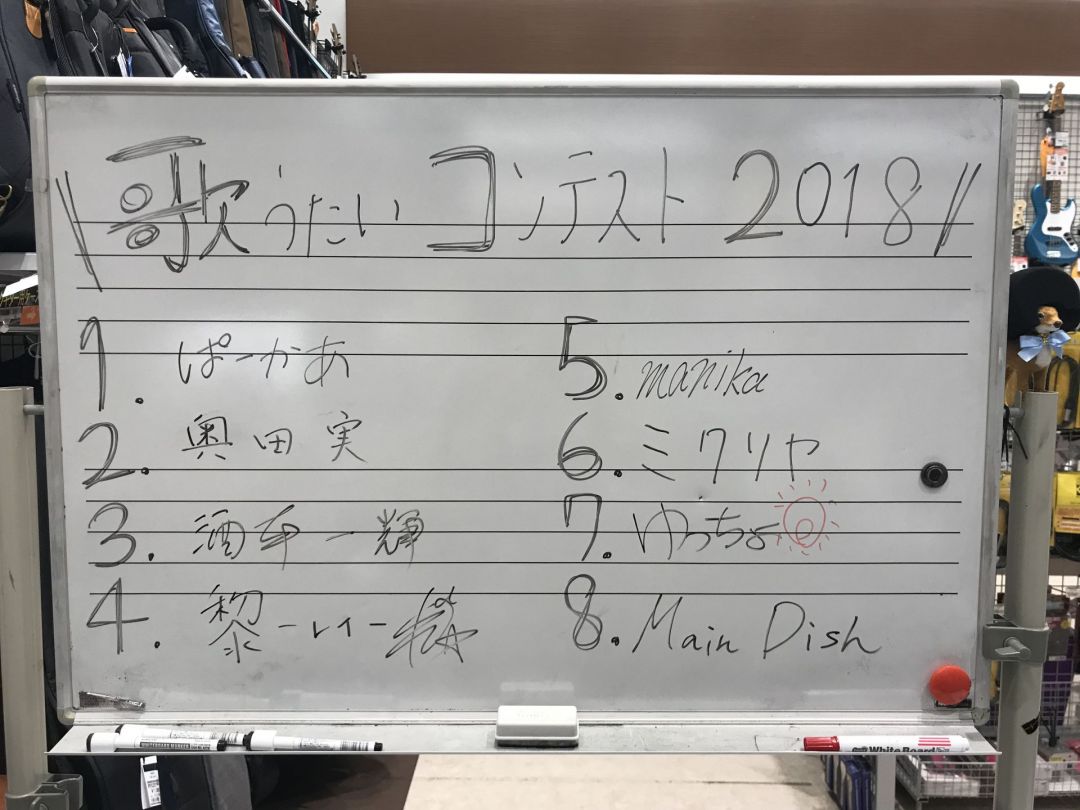 \\歌うたいコンテスト2018//
1. ぱーかあ
2. 奥田実
3. 酒本一輝
4. 黎-レイ-
5. manika
6. ミクリヤ
7. ゆっちょ
8. Main Dish
White Board